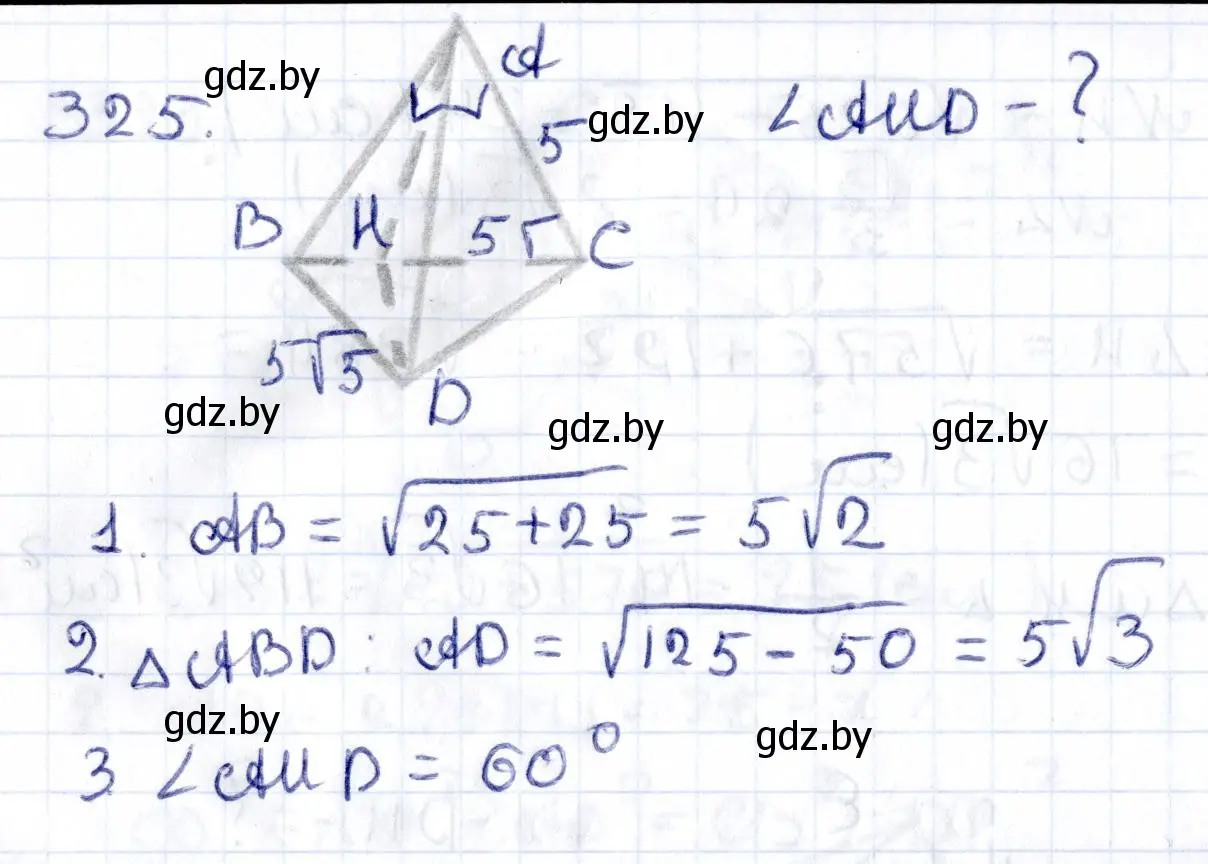 gdz.by
325.
A
5
gdz.by
∠AHD - ?
B H 5 C
5√5
D
gdz.by
gdz.by
gdz.by
1. AB = √25+25 = 5√2
2. △ABD: AD = √125-50 = 5√3
gdz.by
gdz.by
3 ∠AHD = 60°